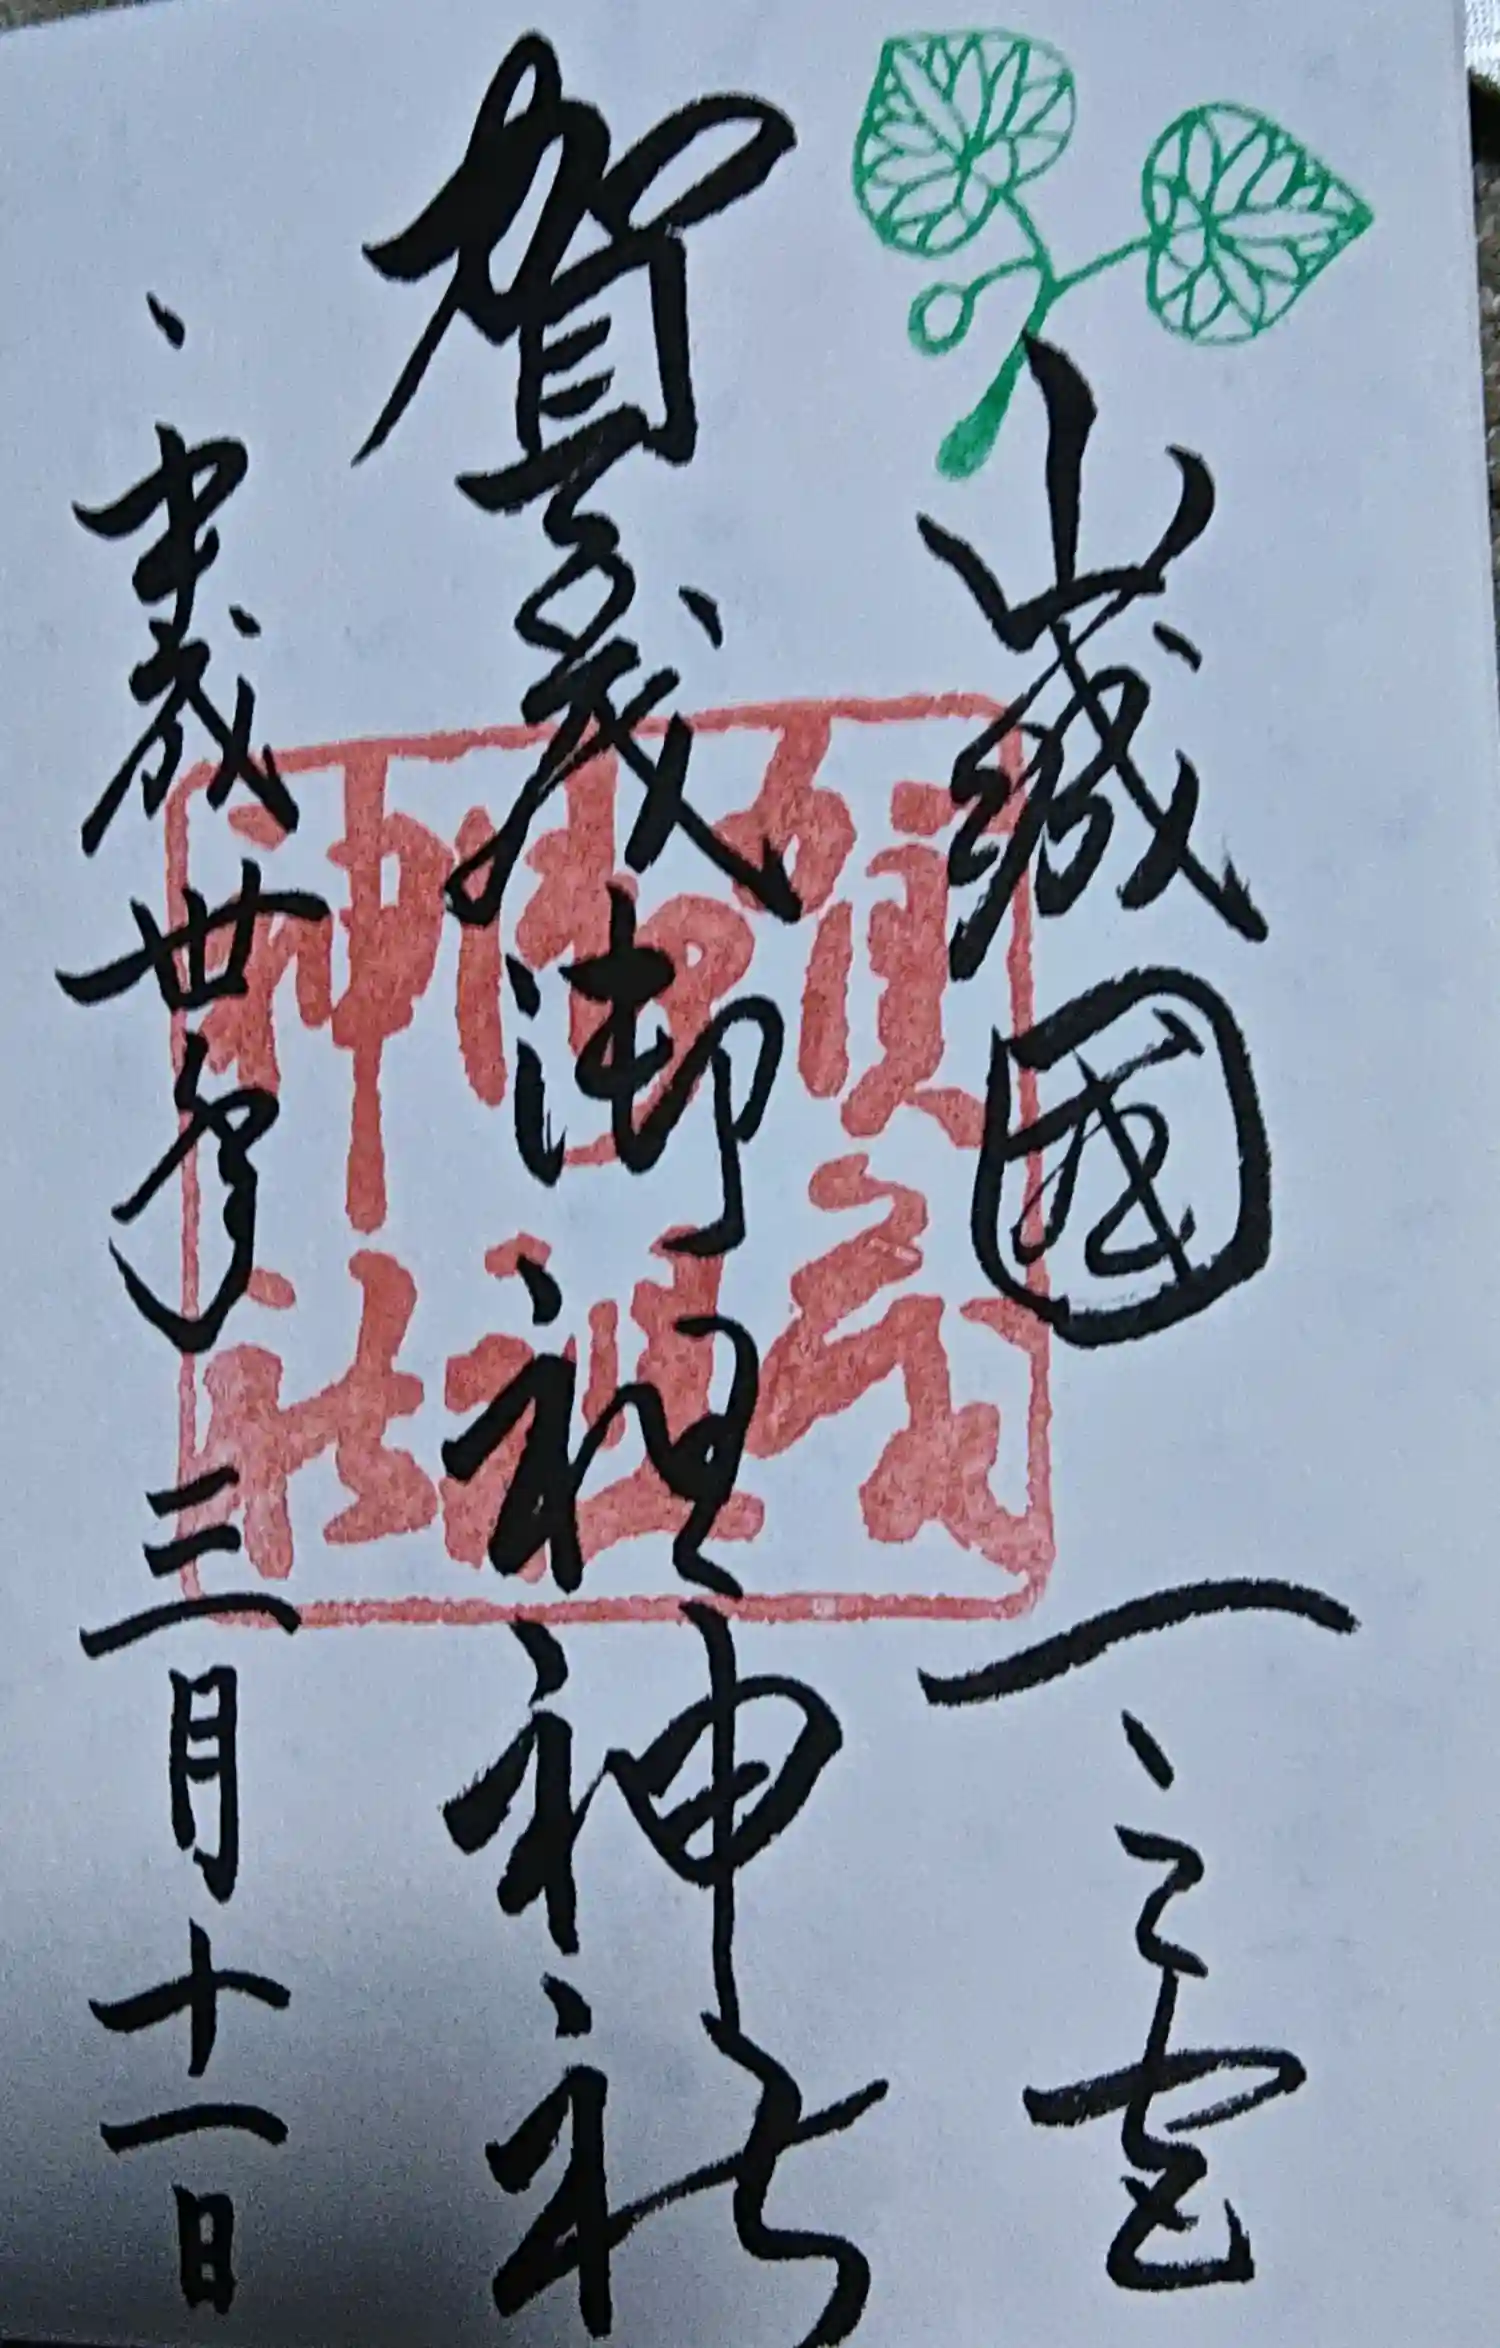 山城國 一之宮
賀茂御祖神社
平成卅年 三月十一日
賀茂
御祖
神社